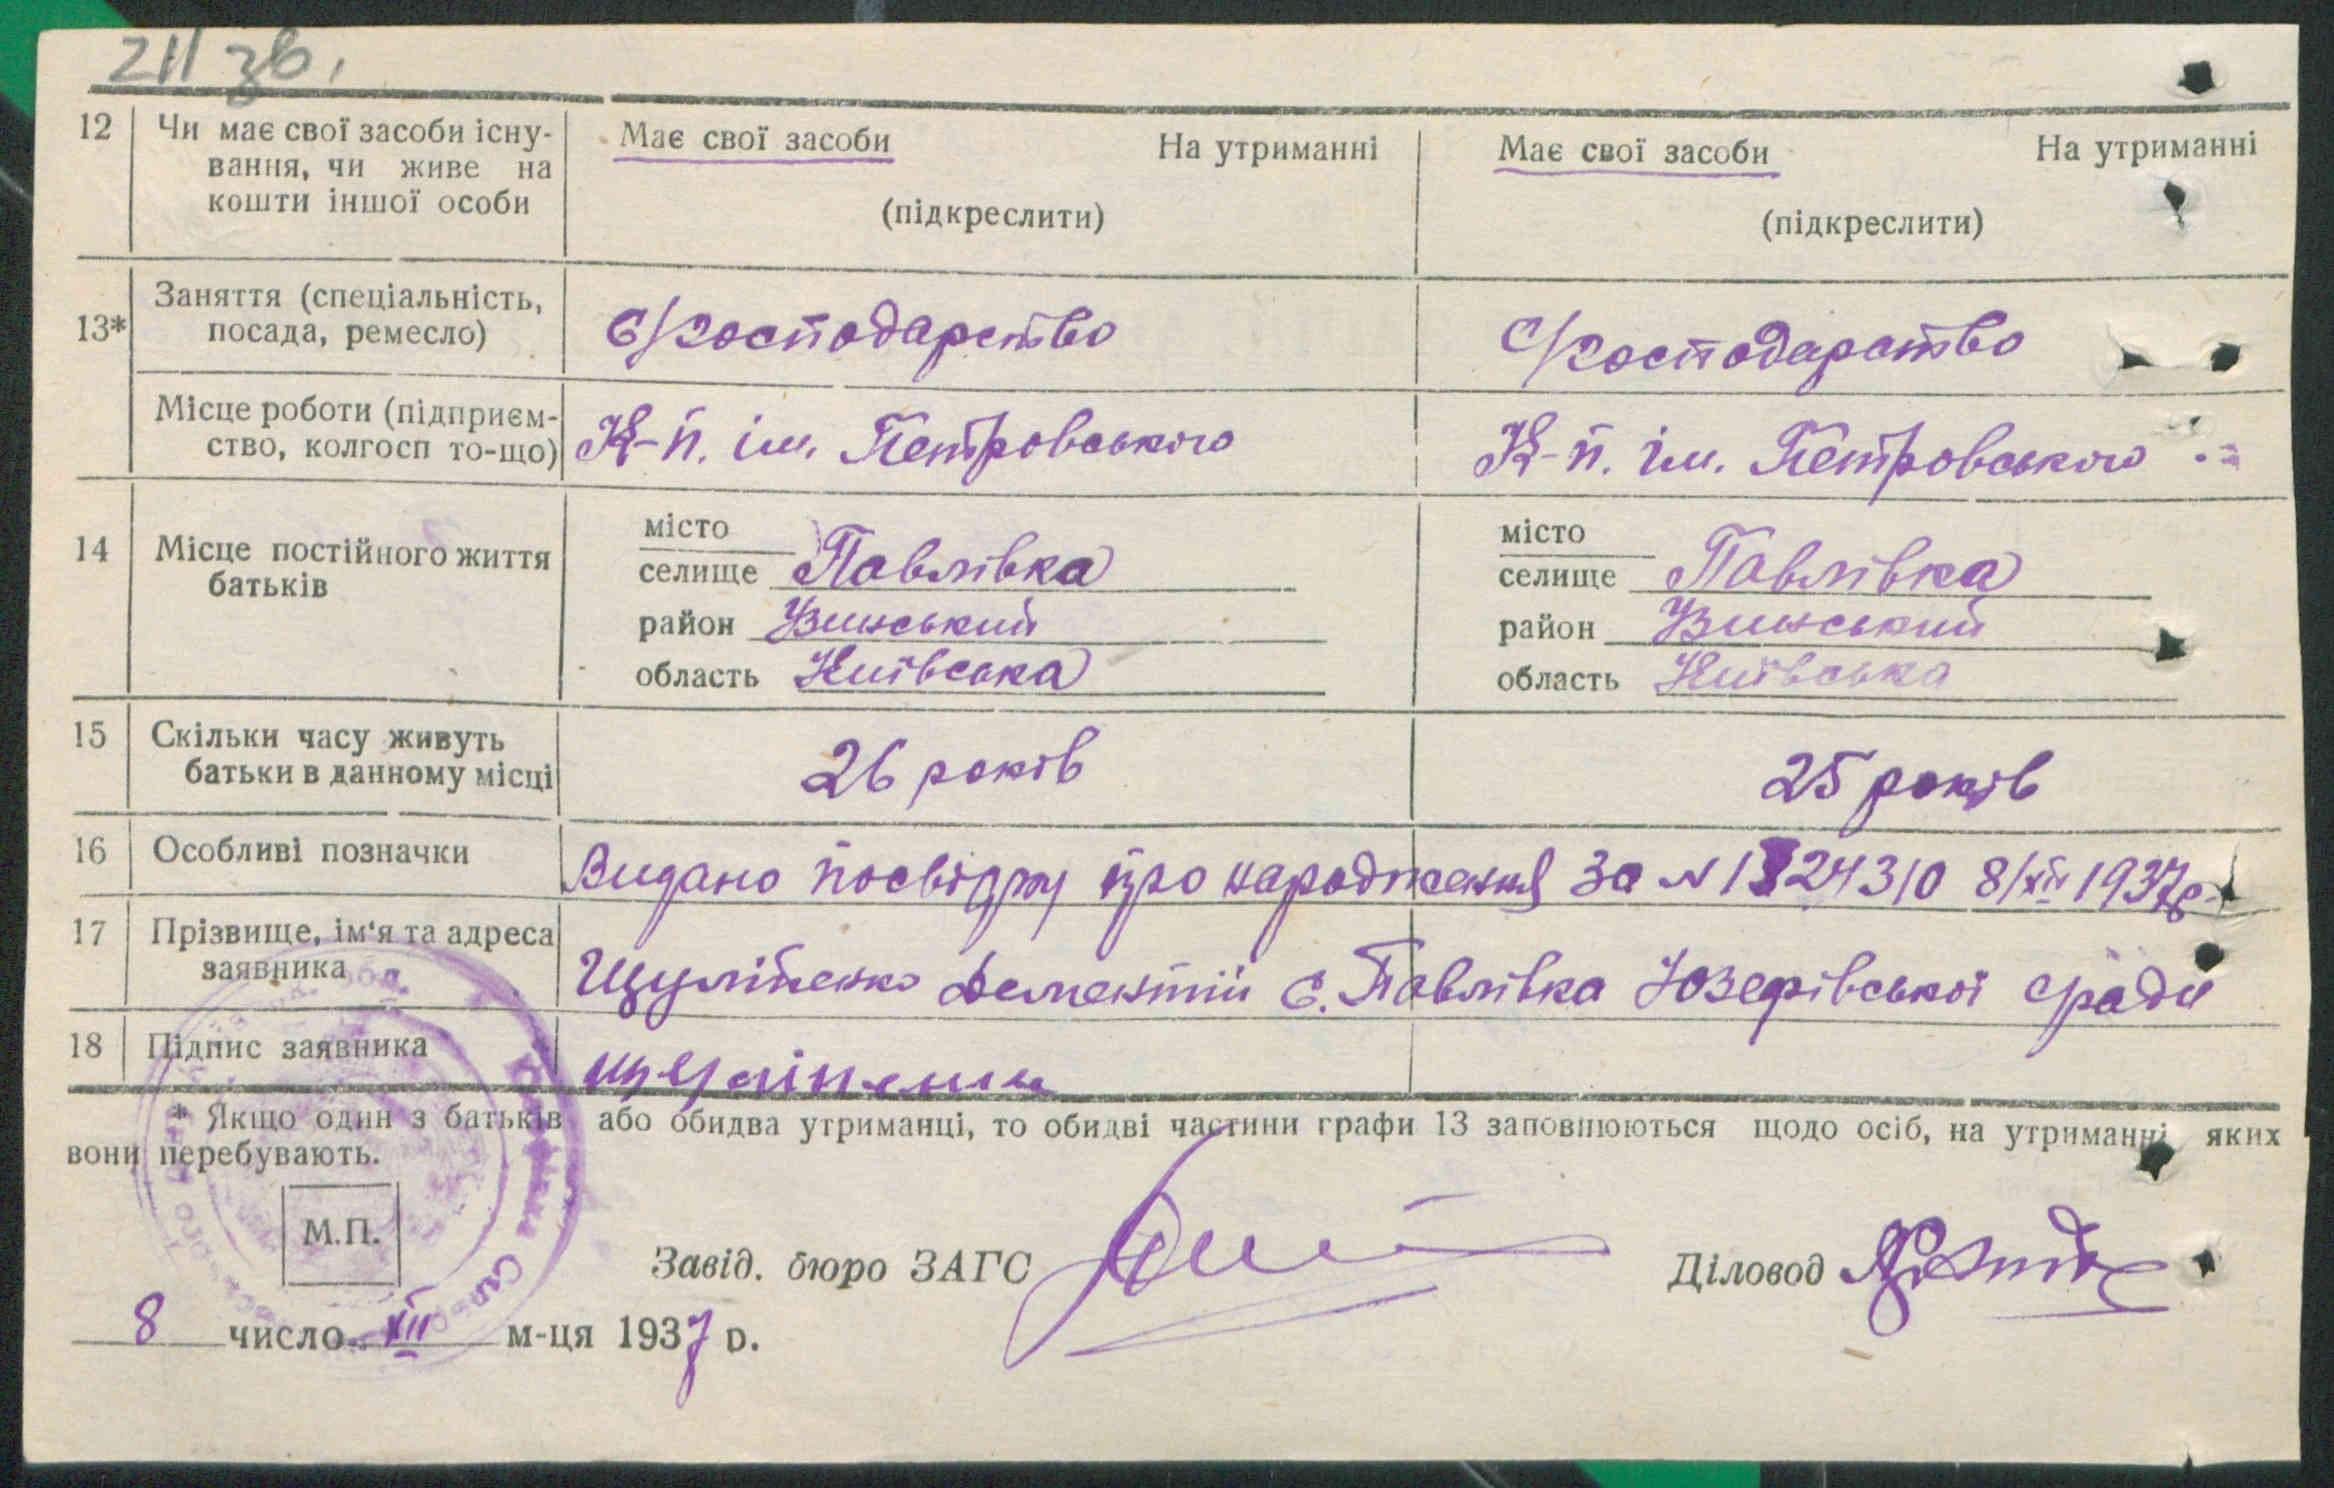 211 зв.
12 Чи має свої засоби існу- Має свої засоби На утриманні Має свої засоби На утриманні
вання, чи живе на
кошти іншої особи (підкреслити) (підкреслити)
13* Заняття (спеціальність, С/господарство С/господарство
посада, ремесло)
Місце роботи (підприєм- К-п. ім. Петровського К-п. ім. Петровського
ство, колгосп то-що)
14 Місце постійного життя місто місто
батьків селище Павлівка селище Павлівка
район Узинський район Узинський
область Київська область Київська
15 Скільки часу живуть 26 років 25 років
батьки в данному місці
16 Особливі позначки Видано посвідку про народження за № 24310 8/XII 1937р.
17 Прізвище, ім'я та адреса Щуліпенко Дементій с. Павлівка Юзефівської с/ради
заявника
18 Підпис заявника Щуліпенко
* Якщо один з батьків або обидва утриманці, то обидві частини графи 13 заповнюються щодо осіб, на утриманні яких
вони перебувають.
М.П.
Завід. бюро ЗАГС Діловод
8 число XII м-ця 1937 р.